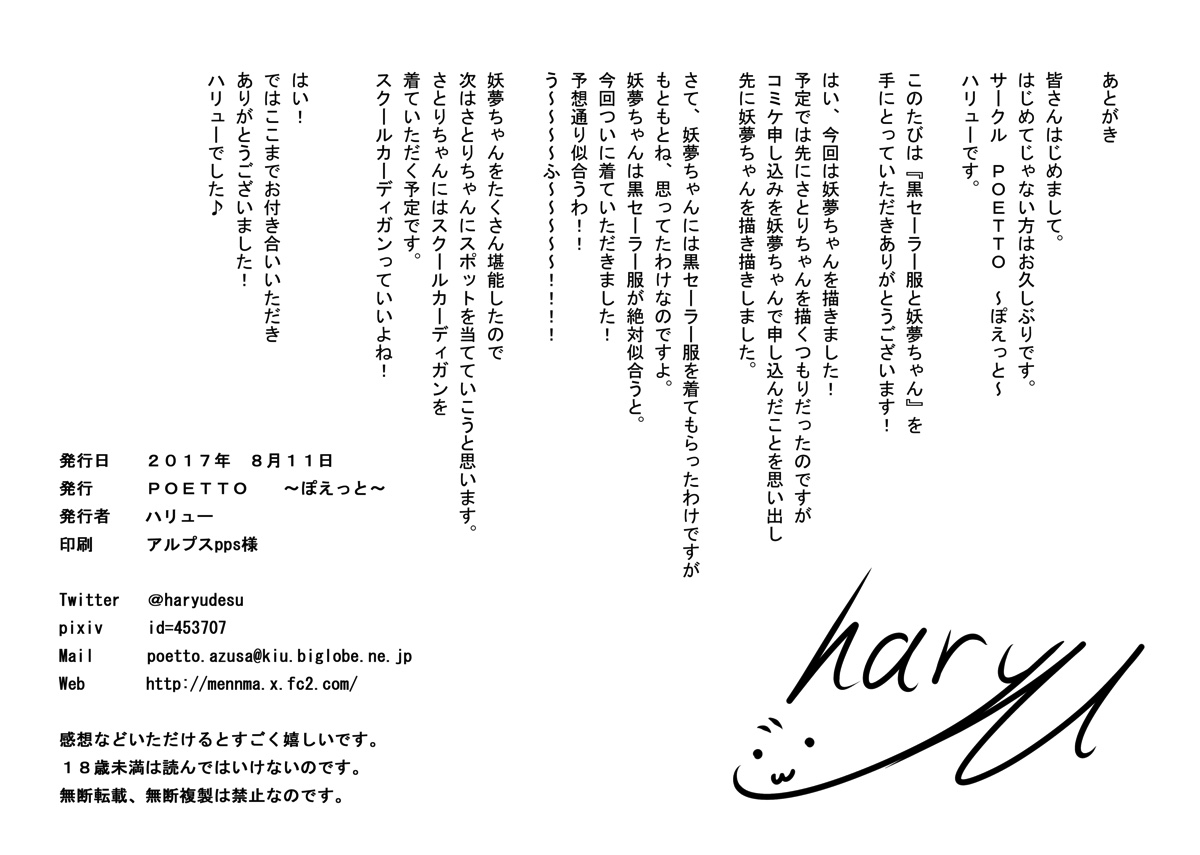 あとがき
皆さんはじめまして。
はじめてじゃない方はお久しぶりです。
サークル　ＰＯＥＴＴＯ　～ぽえっと～
ハリューです。
このたびは『黒セーラー服と妖夢ちゃん』を
手にとっていただきありがとうございます！
はい、今回は妖夢ちゃんを描きました！
予定では先にさとりちゃんを描くつもりだったのですが
コミケ申し込みを妖夢ちゃんで申し込んだことを思い出し
先に妖夢ちゃんを描き描きしました。
さて、妖夢ちゃんには黒セーラー服を着てもらったわけですが
もともとね、思ってたわけなのですよ。
妖夢ちゃんは黒セーラー服が絶対似合うと。
今回ついに着ていただきました！
予想通り似合うわ！！
う～～～～ふ～～～～～！！！！
妖夢ちゃんをたくさん堪能したので
次はさとりちゃんにスポットを当てていこうと思います。
さとりちゃんにはスクールカーディガンを
着ていただく予定です。
スクールカーディガンっていいよね！
はい！
ではここまでお付き合いいただき
ありがとうございました！
ハリューでした♪
発行日　２０１７年　８月１１日
発行　ＰＯＥＴＴＯ　～ぽえっと～
発行者　ハリュー
印刷　アルプスpps様
Twitter　@haryudesu
pixiv　id=453707
Mail　poetto.azusa@kiu.biglobe.ne.jp
Web　http://mennma.x.fc2.com/
感想などいただけるとすごく嬉しいです。
１８歳未満は読んではいけないのです。
無断転載、無断複製は禁止なのです。
haryu